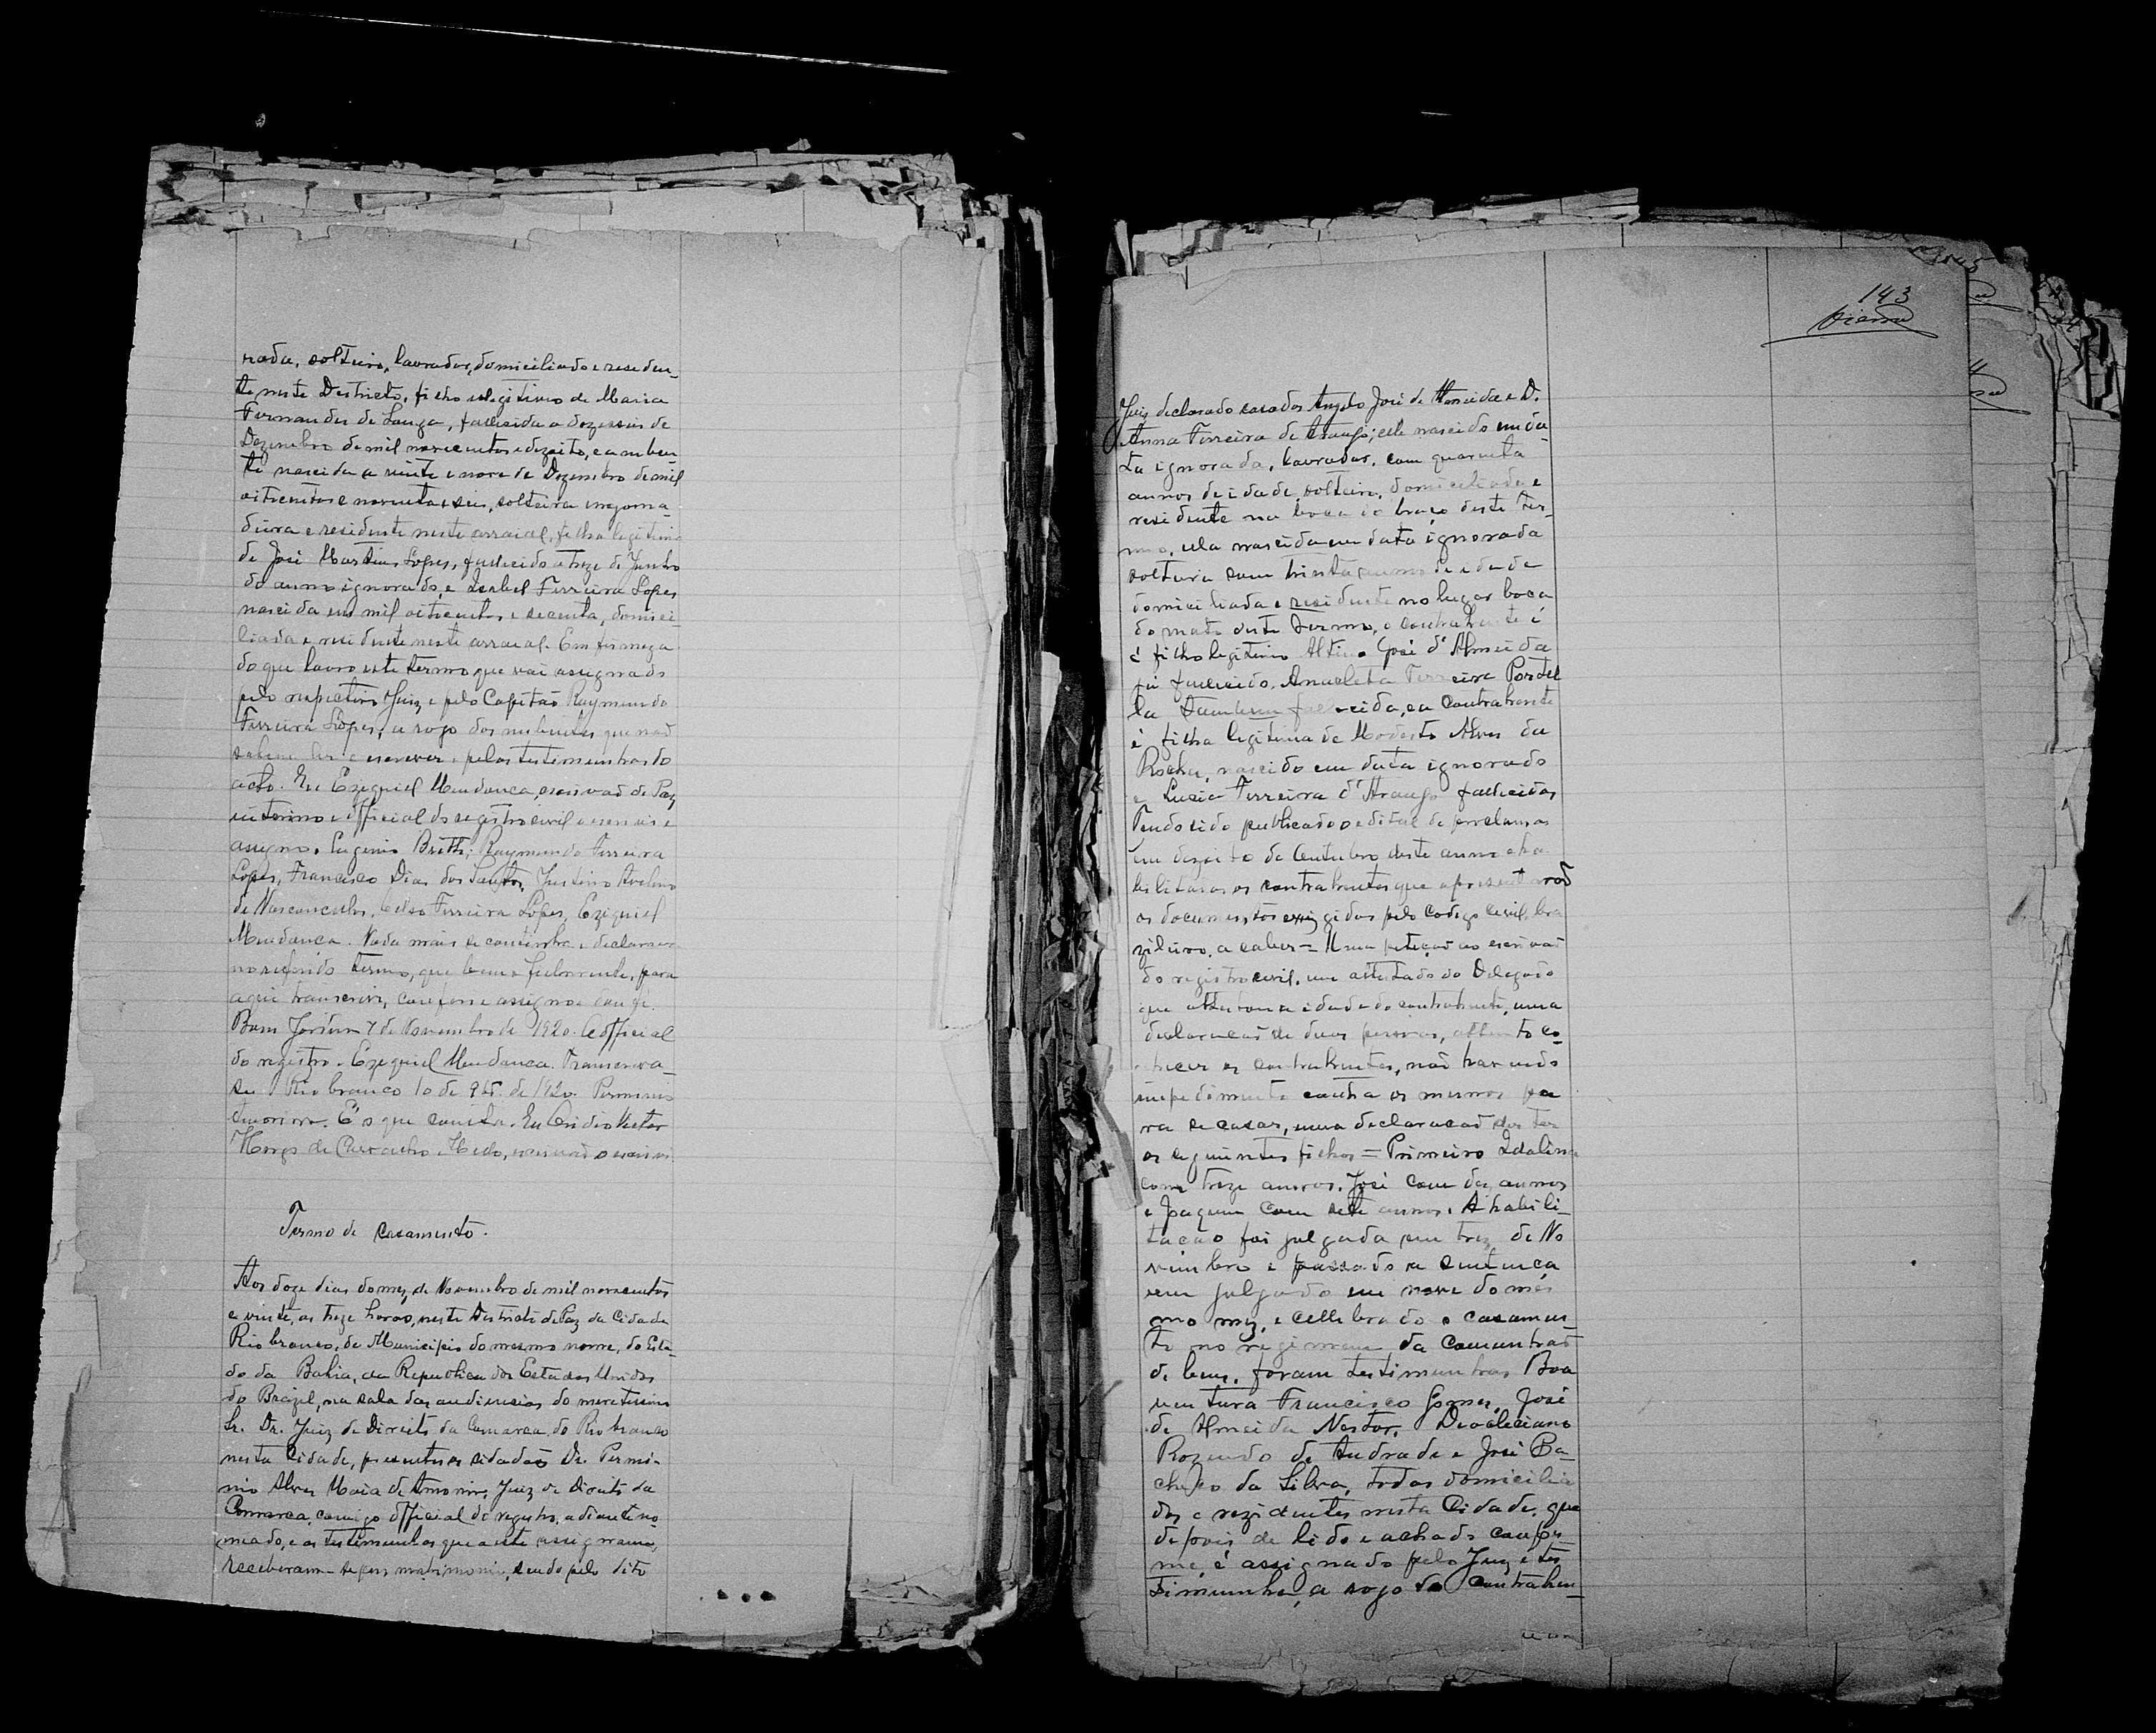 rada, solteiro, lavrador, domiciliado e residen-
te neste Destricto, filho illegitimo de Maria
Fernandes de Souza, fallecida a dezesseis de
Dezembro de mil novecentos e dezoito, e a nuben-
te nascida a vinte e nove de Dezembro de mil
oitocentos e noventa e seis, solteira, engoma-
deira e residente neste arraial, filha legitima
de José Martins Lopes, fallecido a treze de Junho
do anno ignorado, e Izabel Ferreira Lopes
nascida em mil oitocentos e secenta, domici
liada e residente neste arraial. Em firmeza
do que lavro este termo que vai assignado
pelo respectivo Juiz e pelo Capitão Raymundo
Ferreira Lopes, a rogo dos nubentes que não
sabem ler e escrever e pelas testimunhas do
acto. Eu Ezequiel Mendonca, escrivão de Paz
interino e official do registro civil o escrevi e
assigno. Eugenio Britto; Raymundo Ferreira
Lopes, Francisco Dias dos Santos, Justino Avelino
de Vasconcellos, Celso Ferreira Lopes, Ezequiel
Mendonca. Nada mais se continha e declarava
no referido termo, que bem e fielmente, para
aqui transcrevi, conferi e assigno e dou fé.
Bom Jardim 7 de Novembro de 1920. O official
do registro. Ezequiel Mendonca. Transcreva-
se Rio branco 10 de 9bro. de 1920. Perminio
Amorim. É o que consta. Eu Victor
de Carvalho escrivão o escrevi

Termo de casamento.

Aos doze dias do mez de Novembro de mil novecentos
e vinte, as treze horas, neste Destricto de Paz da Cidade
Rio branco, do Municipio do mesmo nome, do Esta-
do da Bahia, da Republica dos Estados Unidos
do Brazil, na sala das audiencias do meretissimo
Sr. Dr. Juiz de Direito da Comarca do Rio branco
nesta Cidade, presentes o cidadão Dr. Permi-
nio Alves Maia de Amorim, Juiz de Direito da
Comarca, comigo official do registro, adiante no-
meado, e as testimunhas que a este assignaram,
receberam-se por matrimonio, sendo pelo dito
143
Juiz declarado casados Angelo José de Almeida e D.
Anna Ferreira de Araujo; elle nascido em da-
ta ignorada, lavrador, com quarenta
annos de idade, solteiro, domiciliado e
residente na boca do braço deste Ter-
mo, ella nascida em data ignorada
solteira com trinta annos de idade
domiciliada e residente no lugar boca
do mato deste Termo, o contrahente é
é filho legitimo Altino José d'Almeida
já fallecido, Anacleta Ferreira Portel
la tambem fallecida, e a contrahente
é filha legitima de Modesto Alves da
Rocha, nascido em data ignorado
e Luzia Ferreira d'Araujo fallecidos
Tendo sido publicado o edital de proclamas
em dezoito de Outubro deste anno e ha
bilitaram os contrahentes que apresentarão
os documentos exigidos pelo codigo civil bra
zileiro, a saber = Uma petição ao escrivão
do registro civil, um attestado do Delegado
que attestou a idade do contrahente, uma
declaracão de duas pessoas,
os contrahentes, não havendo
impedimento contra os mesmos pa
ra se casar, uma declaracão dos ter
os seguintes filhos = Primeiro Idalina
com treze annos, José com dez annos
e Joaquim com sete annos. A habili-
tacão foi julgada em trez de No
vembro e passado a sentença
em julgado em nove do mes
mo mez, e cellebrado o casamen-
to no regimem da comunhão
de bens, foram testimunhas Boa
ventura Francisco Gomes, José
de Almeida Nestor, Deocleciano
Rozendo de Andrade e José Pa-
checo da Silva, todos domicilia
dos e rezidentes nesta Cidade, que
depois de lido e achado confor
me, é assignado pelo Juiz e tes
timunha, a rogo do contrahen-